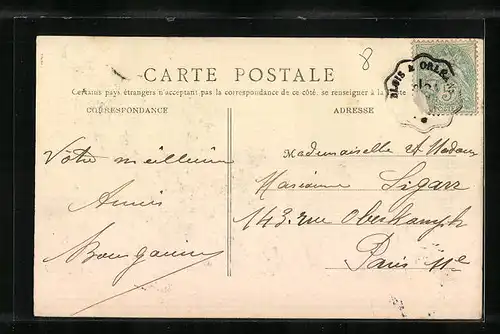 8
CARTE POSTALE
Certains pays étrangers n'acceptant pas la correspondance de ce côté, se renseigner à la poste
CORRESPONDANCE
ADRESSE
BLOIS A ORLÉANS
Votre meilleure
Amies
Mademoiselle et Madame
143 rue Oberkampf
Paris 11e